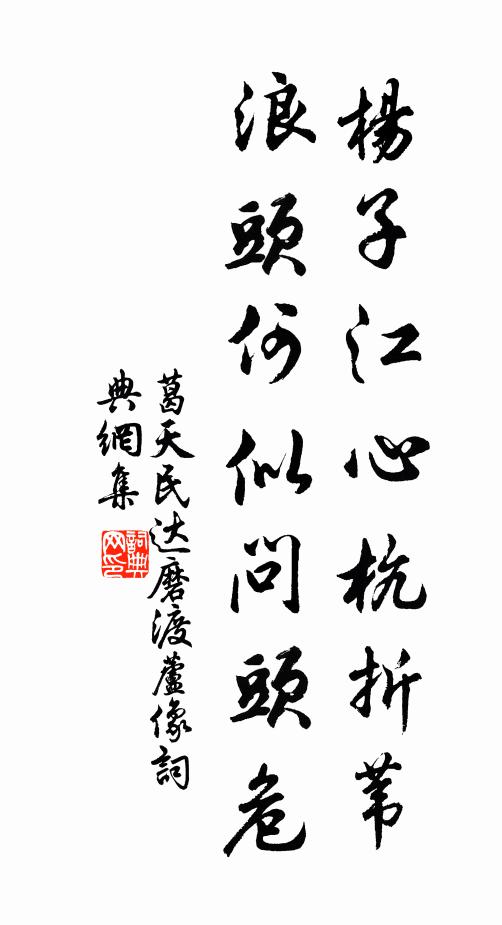 楊子江心杭折葦
浪頭何似問頭危
葛天民达磨渡蘆像詞
典網集
詞典
网印